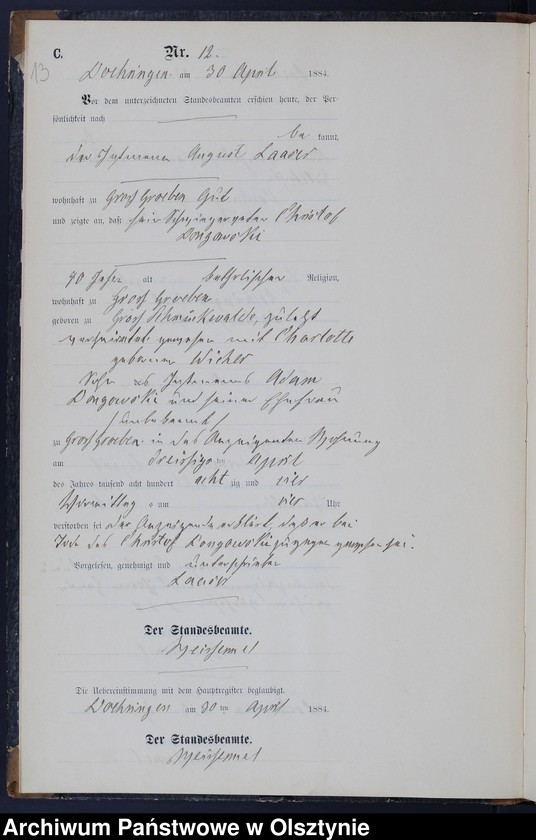 C. Nr. 12.
13
Doehringen am 30 April 1884.
Vor dem unterzeichneten Standesbeamten erschien heute, der Per-
sönlichkeit nach
be kannt,
der Instmann August
wohnhaft zu Groß Groeben Gut
und zeigte an, daß sein Schwiegervater Christof
Dongowski
90 Jahr alt katholischer Religion,
wohnhaft zu Groß Groeben
geboren zu Groß Schmückwalde, zuletzt
verheiratet gewesen mit Charlotte
geborenen Wicher
Sohn des Instmanns Adam
Dongowski und seiner Ehefrau
/unbekannt/
zu Groß Groeben in des Anzeigenden Wohnung
am dreissigsten April
des Jahres tausend acht hundert acht zig und vier
Vormittag s um vier Uhr
verstorben sei der Anzeigende erklärt, daß er bei
Tode des Christof Dongowski zugegen gewesen sei.
Vorgelesen, genehmigt und unterschrieben
Der Standesbeamte.
Die Uebereinstimmung mit dem Hauptregister beglaubigt.
Doehringen am 30 ten April 1884.
Der Standesbeamte.
Archiwum Państwowe w Olsztynie